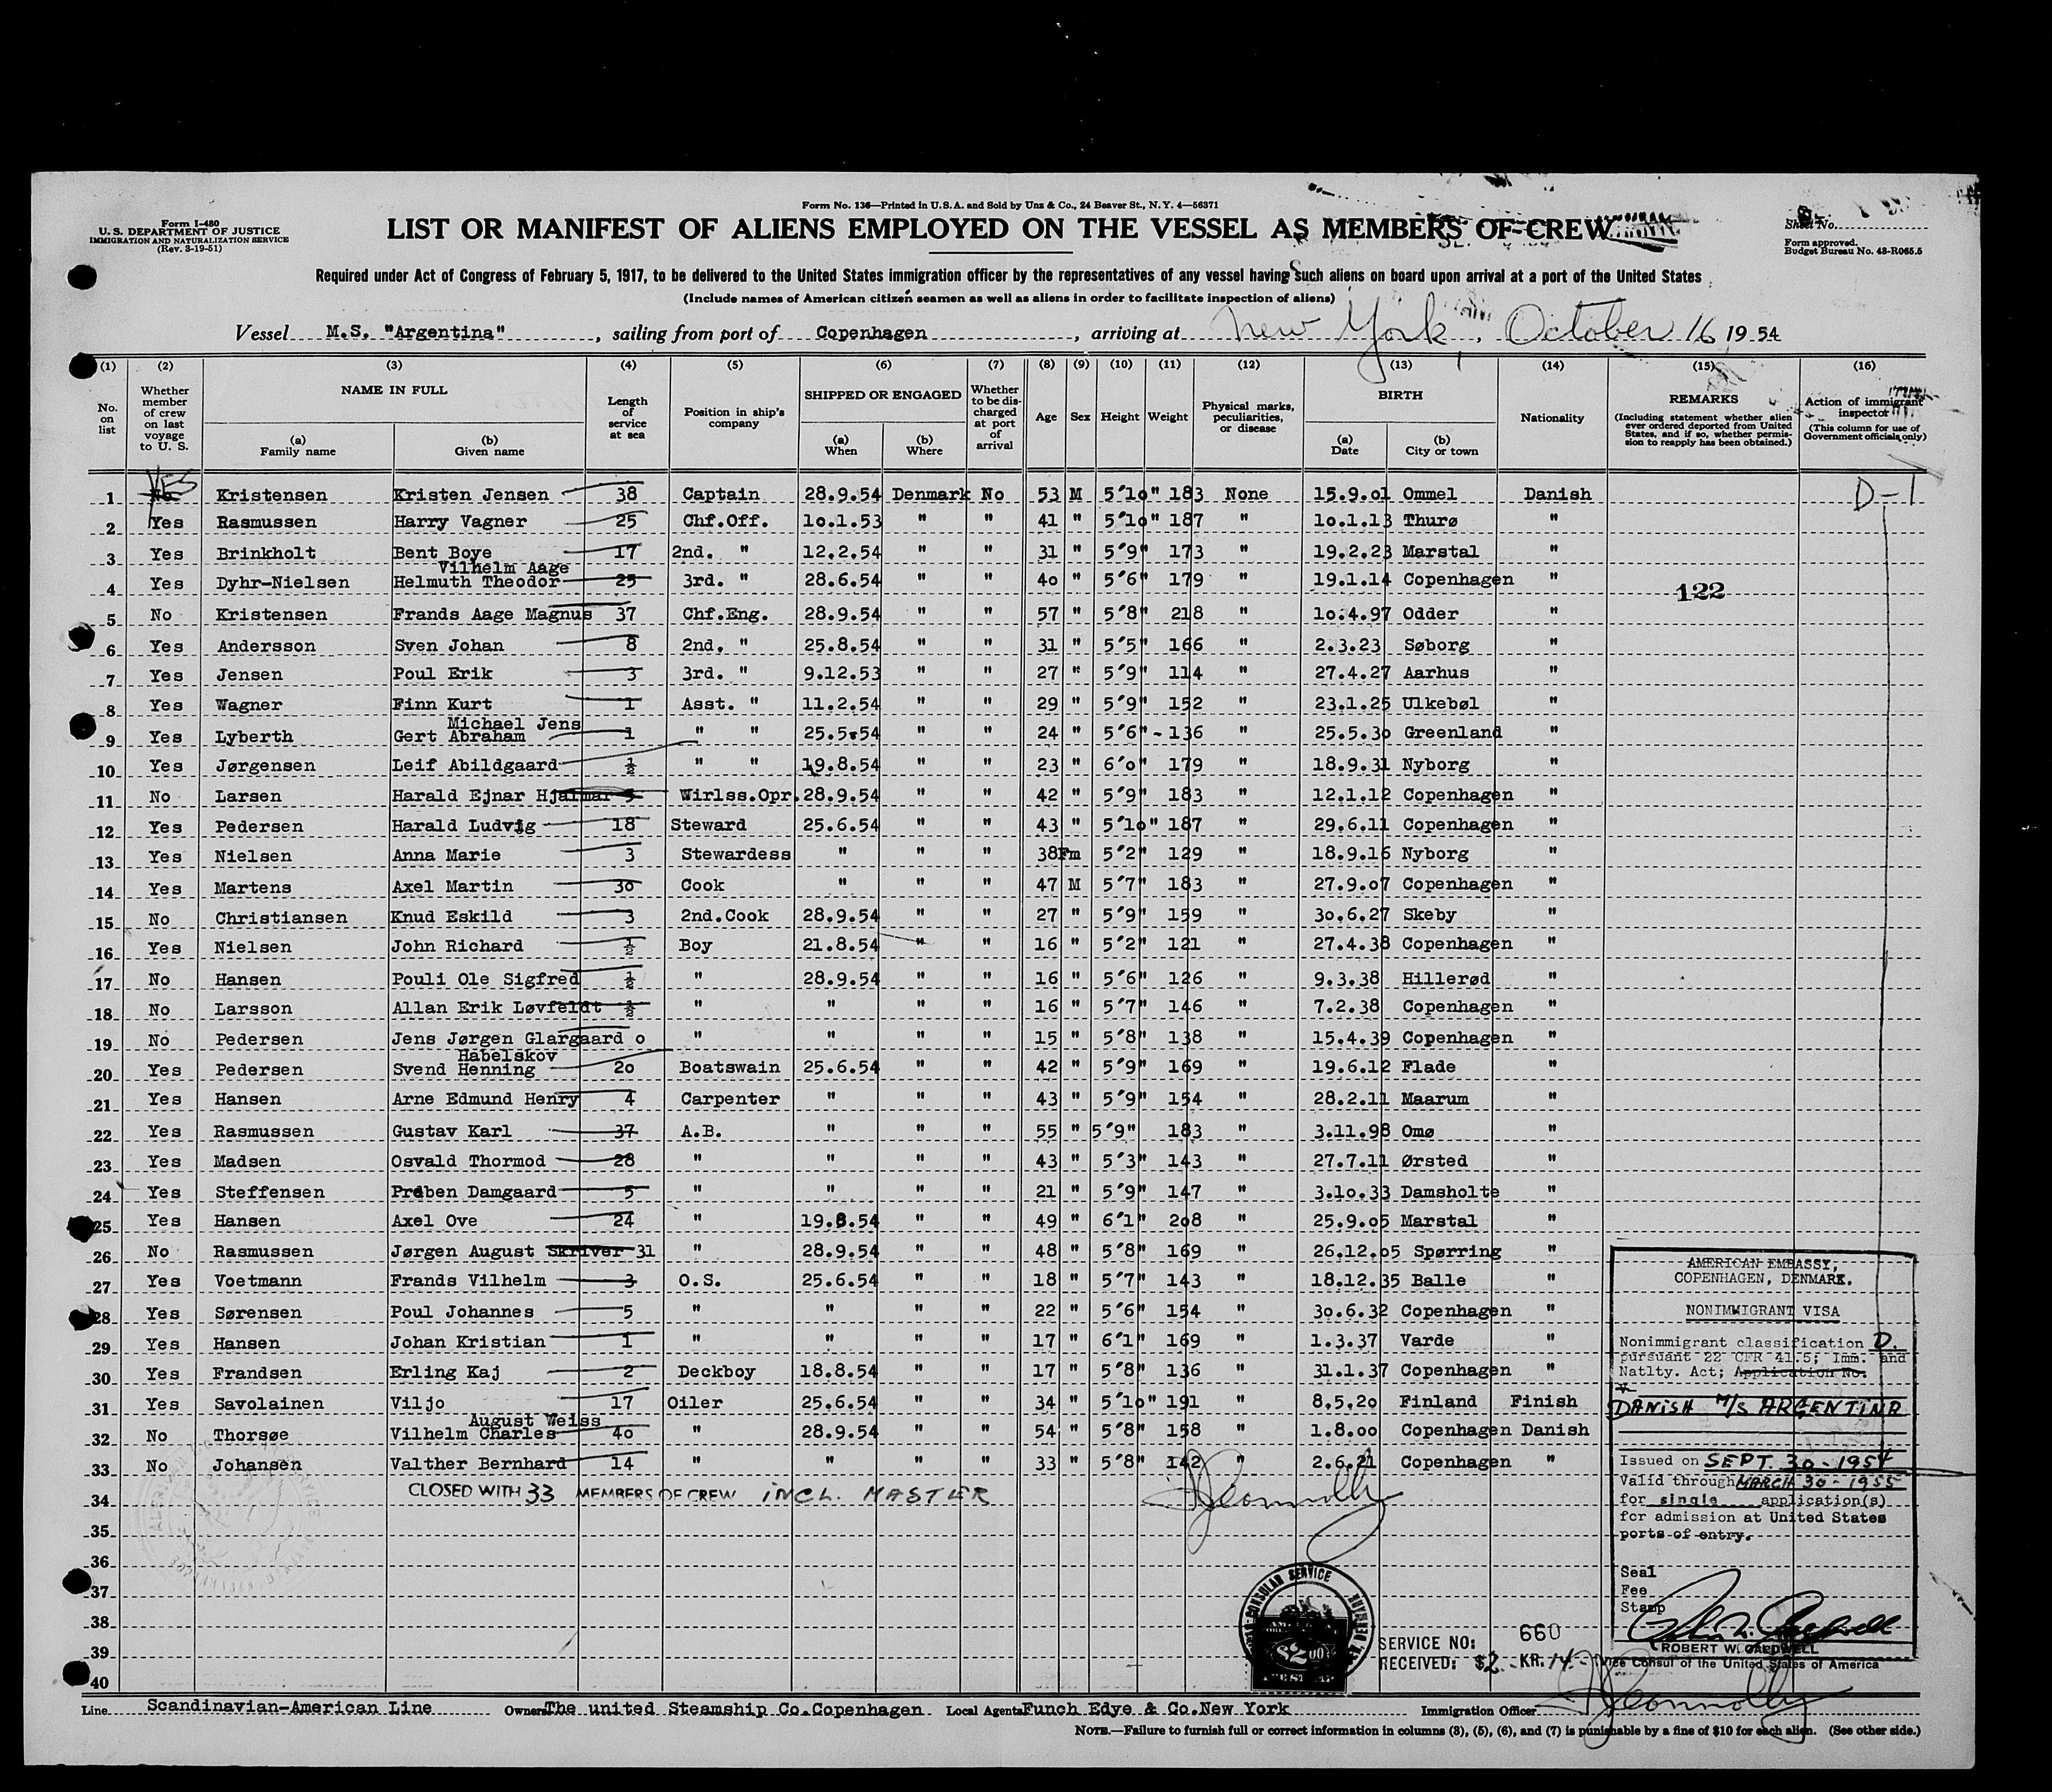 Form No. 136—Printed in U.S.A. and Sold by Unz & Co., 24 Beaver St., N.Y. 4—56371
Form I-480
U. S. DEPARTMENT OF JUSTICE
IMMIGRATION AND NATURALIZATION SERVICE
(Rev. 3-19-51)
LIST OR MANIFEST OF ALIENS EMPLOYED ON THE VESSEL AS MEMBERS OF CREW
Sheet No.
Form approved.
Budget Bureau No. 43-R065.5
Required under Act of Congress of February 5, 1917, to be delivered to the United States immigration officer by the representatives of any vessel having such aliens on board upon arrival at a port of the United States
(Include names of American citizen seamen as well as aliens in order to facilitate inspection of aliens)
Vessel M.S. "Argentina", sailing from port of Copenhagen, arriving at New York, October 16 1954
(1) (2) (3) (4) (5) (6) (7) (8) (9) (10) (11) (12) (13) (14) (15) (16)
No. on list
Whether member of crew on last voyage to U. S.
NAME IN FULL
(a) Family name
(b) Given name
Length of service at sea
Position in ship's company
SHIPPED OR ENGAGED
(a) When
(b) Where
Whether to be discharged at port of arrival
Age
Sex
Height
Weight
Physical marks, peculiarities, or disease
BIRTH
(a) Date
(b) City or town
Nationality
REMARKS
(Including statement whether alien ever ordered deported from United States, and if so, whether permission to reapply has been obtained.)
Action of immigrant inspector
(This column for use of Government officials only)
YES
1 No Kristensen Kristen Jensen 38 Captain 28.9.54 Denmark No 53 M 5'10" 183 None 15.9.01 Ommel Danish D-1
2 Yes Rasmussen Harry Vagner 25 Chf.Off. 10.1.53 " " 41 " 5'10" 187 " 10.1.13 Thurø "
3 Yes Brinkholt Bent Boye 17 2nd. " 12.2.54 " " 31 " 5'9" 173 " 19.2.23 Marstal "
Vilhelm Aage
4 Yes Dyhr-Nielsen Helmuth Theodor 25 3rd. " 28.6.54 " " 40 " 5'6" 179 " 19.1.14 Copenhagen " 122
5 No Kristensen Frands Aage Magnus 37 Chf.Eng. 28.9.54 " " 57 " 5'8" 218 " 10.4.97 Odder "
6 Yes Andersson Sven Johan 8 2nd. " 25.8.54 " " 31 " 5'5" 166 " 2.3.23 Søborg "
7 Yes Jensen Poul Erik 3 3rd. " 9.12.53 " " 27 " 5'9" 114 " 27.4.27 Aarhus "
8 Yes Wagner Finn Kurt 1 Asst. " 11.2.54 " " 29 " 5'9" 152 " 23.1.25 Ulkebøl "
Michael Jens
9 Yes Lyberth Gert Abraham 1 " " 25.5.54 " " 24 " 5'6" - 136 " 25.5.30 Greenland "
10 Yes Jørgensen Leif Abildgaard ½ " " 19.8.54 " " 23 " 6'0" 179 " 18.9.31 Nyborg "
11 No Larsen Harald Ejnar Hjalmar 5 Wirlss.Opr. 28.9.54 " " 42 " 5'9" 183 " 12.1.12 Copenhagen "
12 Yes Pedersen Harald Ludvig 18 Steward 25.6.54 " " 43 " 5'10" 187 " 29.6.11 Copenhagen "
13 Yes Nielsen Anna Marie 3 Stewardess " " " 38 Fm 5'2" 129 " 18.9.16 Nyborg "
14 Yes Martens Axel Martin 30 Cook " " " 47 M 5'7" 183 " 27.9.07 Copenhagen "
15 No Christiansen Knud Eskild 3 2nd.Cook 28.9.54 " " 27 " 5'9" 159 " 30.6.27 Skeby "
16 Yes Nielsen John Richard ½ Boy 21.8.54 " " 16 " 5'2" 121 " 27.4.38 Copenhagen "
17 No Hansen Pouli Ole Sigfred ½ " 28.9.54 " " 16 " 5'6" 126 " 9.3.38 Hillerød "
18 No Larsson Allan Erik Løvfeldt ½ " " " " 16 " 5'7" 146 " 7.2.38 Copenhagen "
19 No Pedersen Jens Jørgen Glargaard 0 " " " " 15 " 5'8" 138 " 15.4.39 Copenhagen "
Habelskov
20 Yes Pedersen Svend Henning 20 Boatswain 25.6.54 " " 42 " 5'9" 169 " 19.6.12 Flade "
21 Yes Hansen Arne Edmund Henry 4 Carpenter " " " 43 " 5'9" 154 " 28.2.11 Maarum "
22 Yes Rasmussen Gustav Karl 37 A.B. " " " 55 " 5'9" 183 " 3.11.98 Omø "
23 Yes Madsen Osvald Thormod 28 " " " " 43 " 5'3" 143 " 27.7.11 Ørsted "
24 Yes Steffensen Preben Damgaard 5 " " " " 21 " 5'9" 147 " 3.10.33 Damsholte "
25 Yes Hansen Axel Ove 24 " 19.8.54 " " 49 " 6'1" 208 " 25.9.05 Marstal "
26 No Rasmussen Jørgen August Skriver 31 " 28.9.54 " " 48 " 5'8" 169 " 26.12.05 Spørring "
27 Yes Voetmann Frands Vilhelm 3 O.S. 25.6.54 " " 18 " 5'7" 143 " 18.12.35 Balle "
28 Yes Sørensen Poul Johannes 5 " " " " 22 " 5'6" 154 " 30.6.32 Copenhagen "
29 Yes Hansen Johan Kristian 1 " " " " 17 " 6'1" 169 " 1.3.37 Varde "
30 Yes Frandsen Erling Kaj 2 Deckboy 18.8.54 " " 17 " 5'8" 136 " 31.1.37 Copenhagen "
31 Yes Savolainen Viljo 17 Oiler 25.6.54 " " 34 " 5'10" 191 " 8.5.20 Finland Finish
August Weiss
32 No Thorsøe Vilhelm Charles 40 " 28.9.54 " " 54 " 5'8" 158 " 1.8.00 Copenhagen Danish
33 No Johansen Valther Bernhard 14 " " " " 33 " 5'8" 142 " 2.6.21 Copenhagen "
34 CLOSED WITH 33 MEMBERS OF CREW INCL. MASTER
35
36
37
38
39
40
AMERICAN EMBASSY,
COPENHAGEN, DENMARK.
NONIMMIGRANT VISA
Nonimmigrant classification D.
pursuant 22 CFR 41.5; Imm. and
Natlty. Act; Application No.
DANISH M/S ARGENTINA
Issued on SEPT. 30-1954
Valid through MARCH 30-1955
for single application(s)
for admission at United States
ports of entry.
Seal
Fee
Stamp
ROBERT W. CALDWELL
Vice Consul of the United States of America
CONSULAR SERVICE
$2.00
SERVICE NO: 660
RECEIVED: $2 KR. 14.-
Line Scandinavian-American Line Owners The united Steamship Co.Copenhagen Local Agents Funch Edye & Co.New York Immigration Officer
NOTE.—Failure to furnish full or correct information in columns (3), (5), (6), and (7) is punishable by a fine of $10 for each alien. (See other side.)